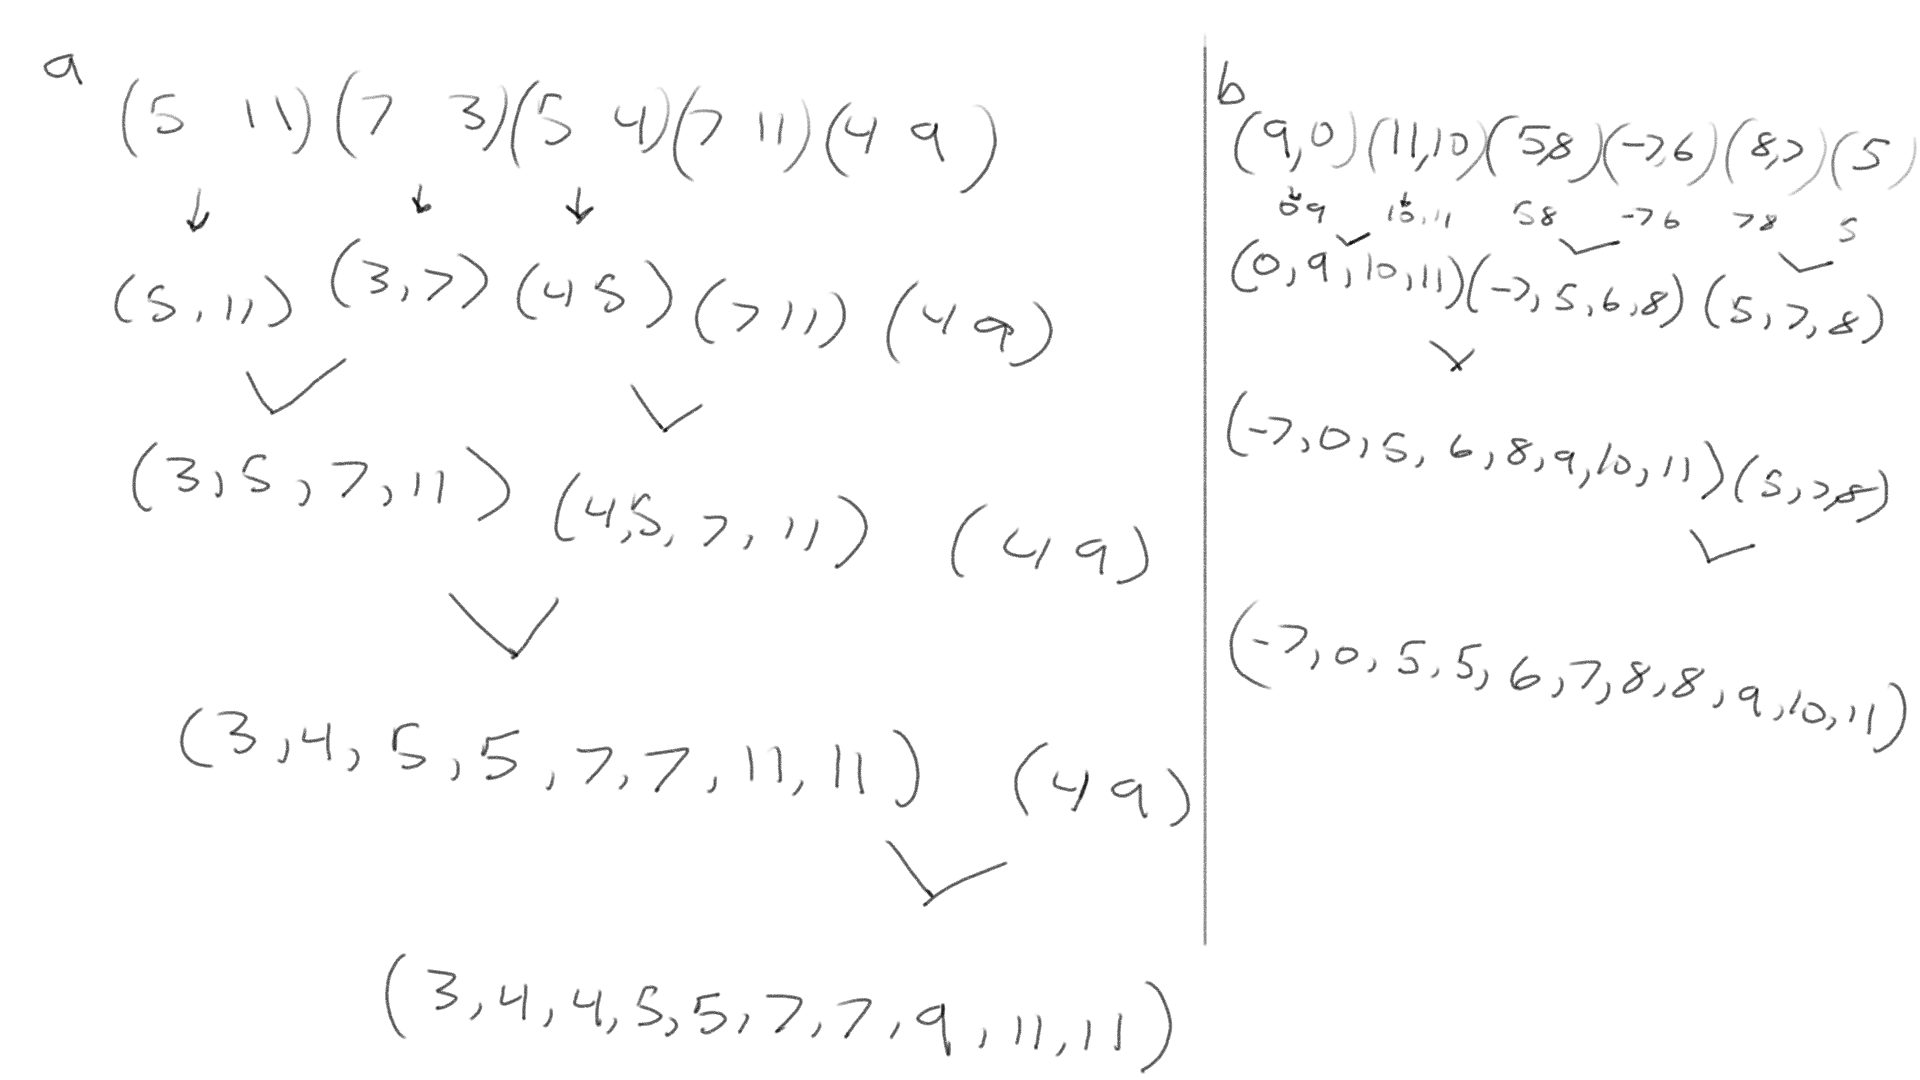 a
(5 11)(7 3)(5 4)(7 11)(4 9)
(5, 11) (3,7) (4 5) (7 11) (4 9)
(3,5,7,11) (4,5,7,11) (4 9)
(3,4,5,5,7,7,11,11) (4 9)
(3,4,4,5,5,7,7,9,11,11)
b
(9,0)(11,10)(5,8)(-7,6)(8,7)(5)
0 9 10,11 5 8 -7 6 7 8 5
(0,9,10,11)(-7,5,6,8)(5,7,8)
(-7,0,5,6,8,9,10,11)(5,7,8)
(-7,0,5,5,6,7,8,8,9,10,11)